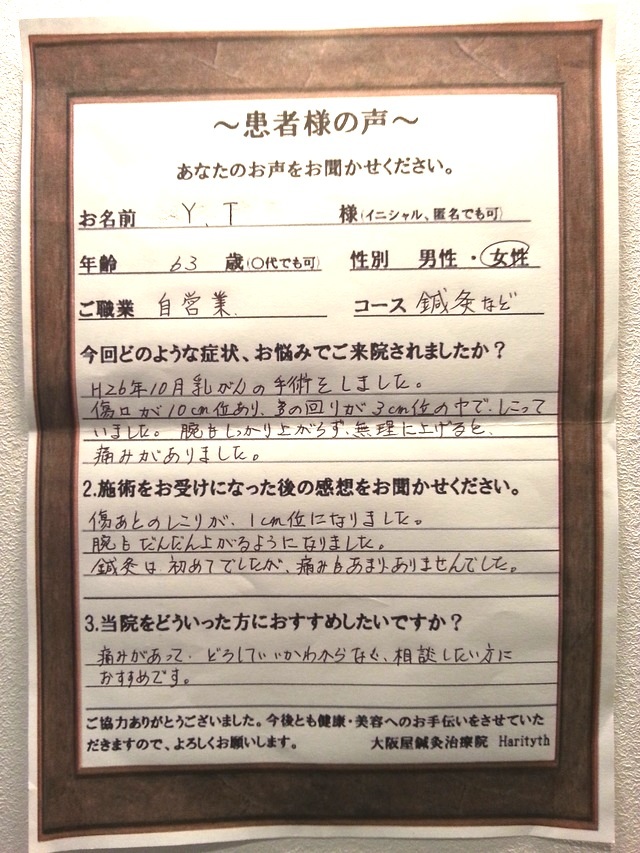 ～患者様の声～
あなたのお声をお聞かせください。
お名前 Y.T 様(イニシャル、匿名でも可)
年齢 63 歳(〇代でも可) 性別 男性・女性
ご職業 自営業. コース 鍼灸など
今回どのような症状、お悩みでご来院されましたか？
H26年10月乳がんの手術をしました。
傷口が10cm位あり、その回りが3cm位の巾で、しこって
いました。腕もしっかり上がらず、無理に上げると、
痛みがありました。
2.施術をお受けになった後の感想をお聞かせください。
傷あとのしこりが、1cm位になりました。
腕もだんだん上がるようになりました。
鍼灸は初めてでしたが、痛みもあまりありませんでした。
3.当院をどういった方におすすめしたいですか？
痛みがあって、どうしていいかわからなく、相談したい方に
おすすめです。
ご協力ありがとうございました。今後とも健康・美容へのお手伝いをさせていた
だきますので、よろしくお願いします。 大阪屋鍼灸治療院 Harityth